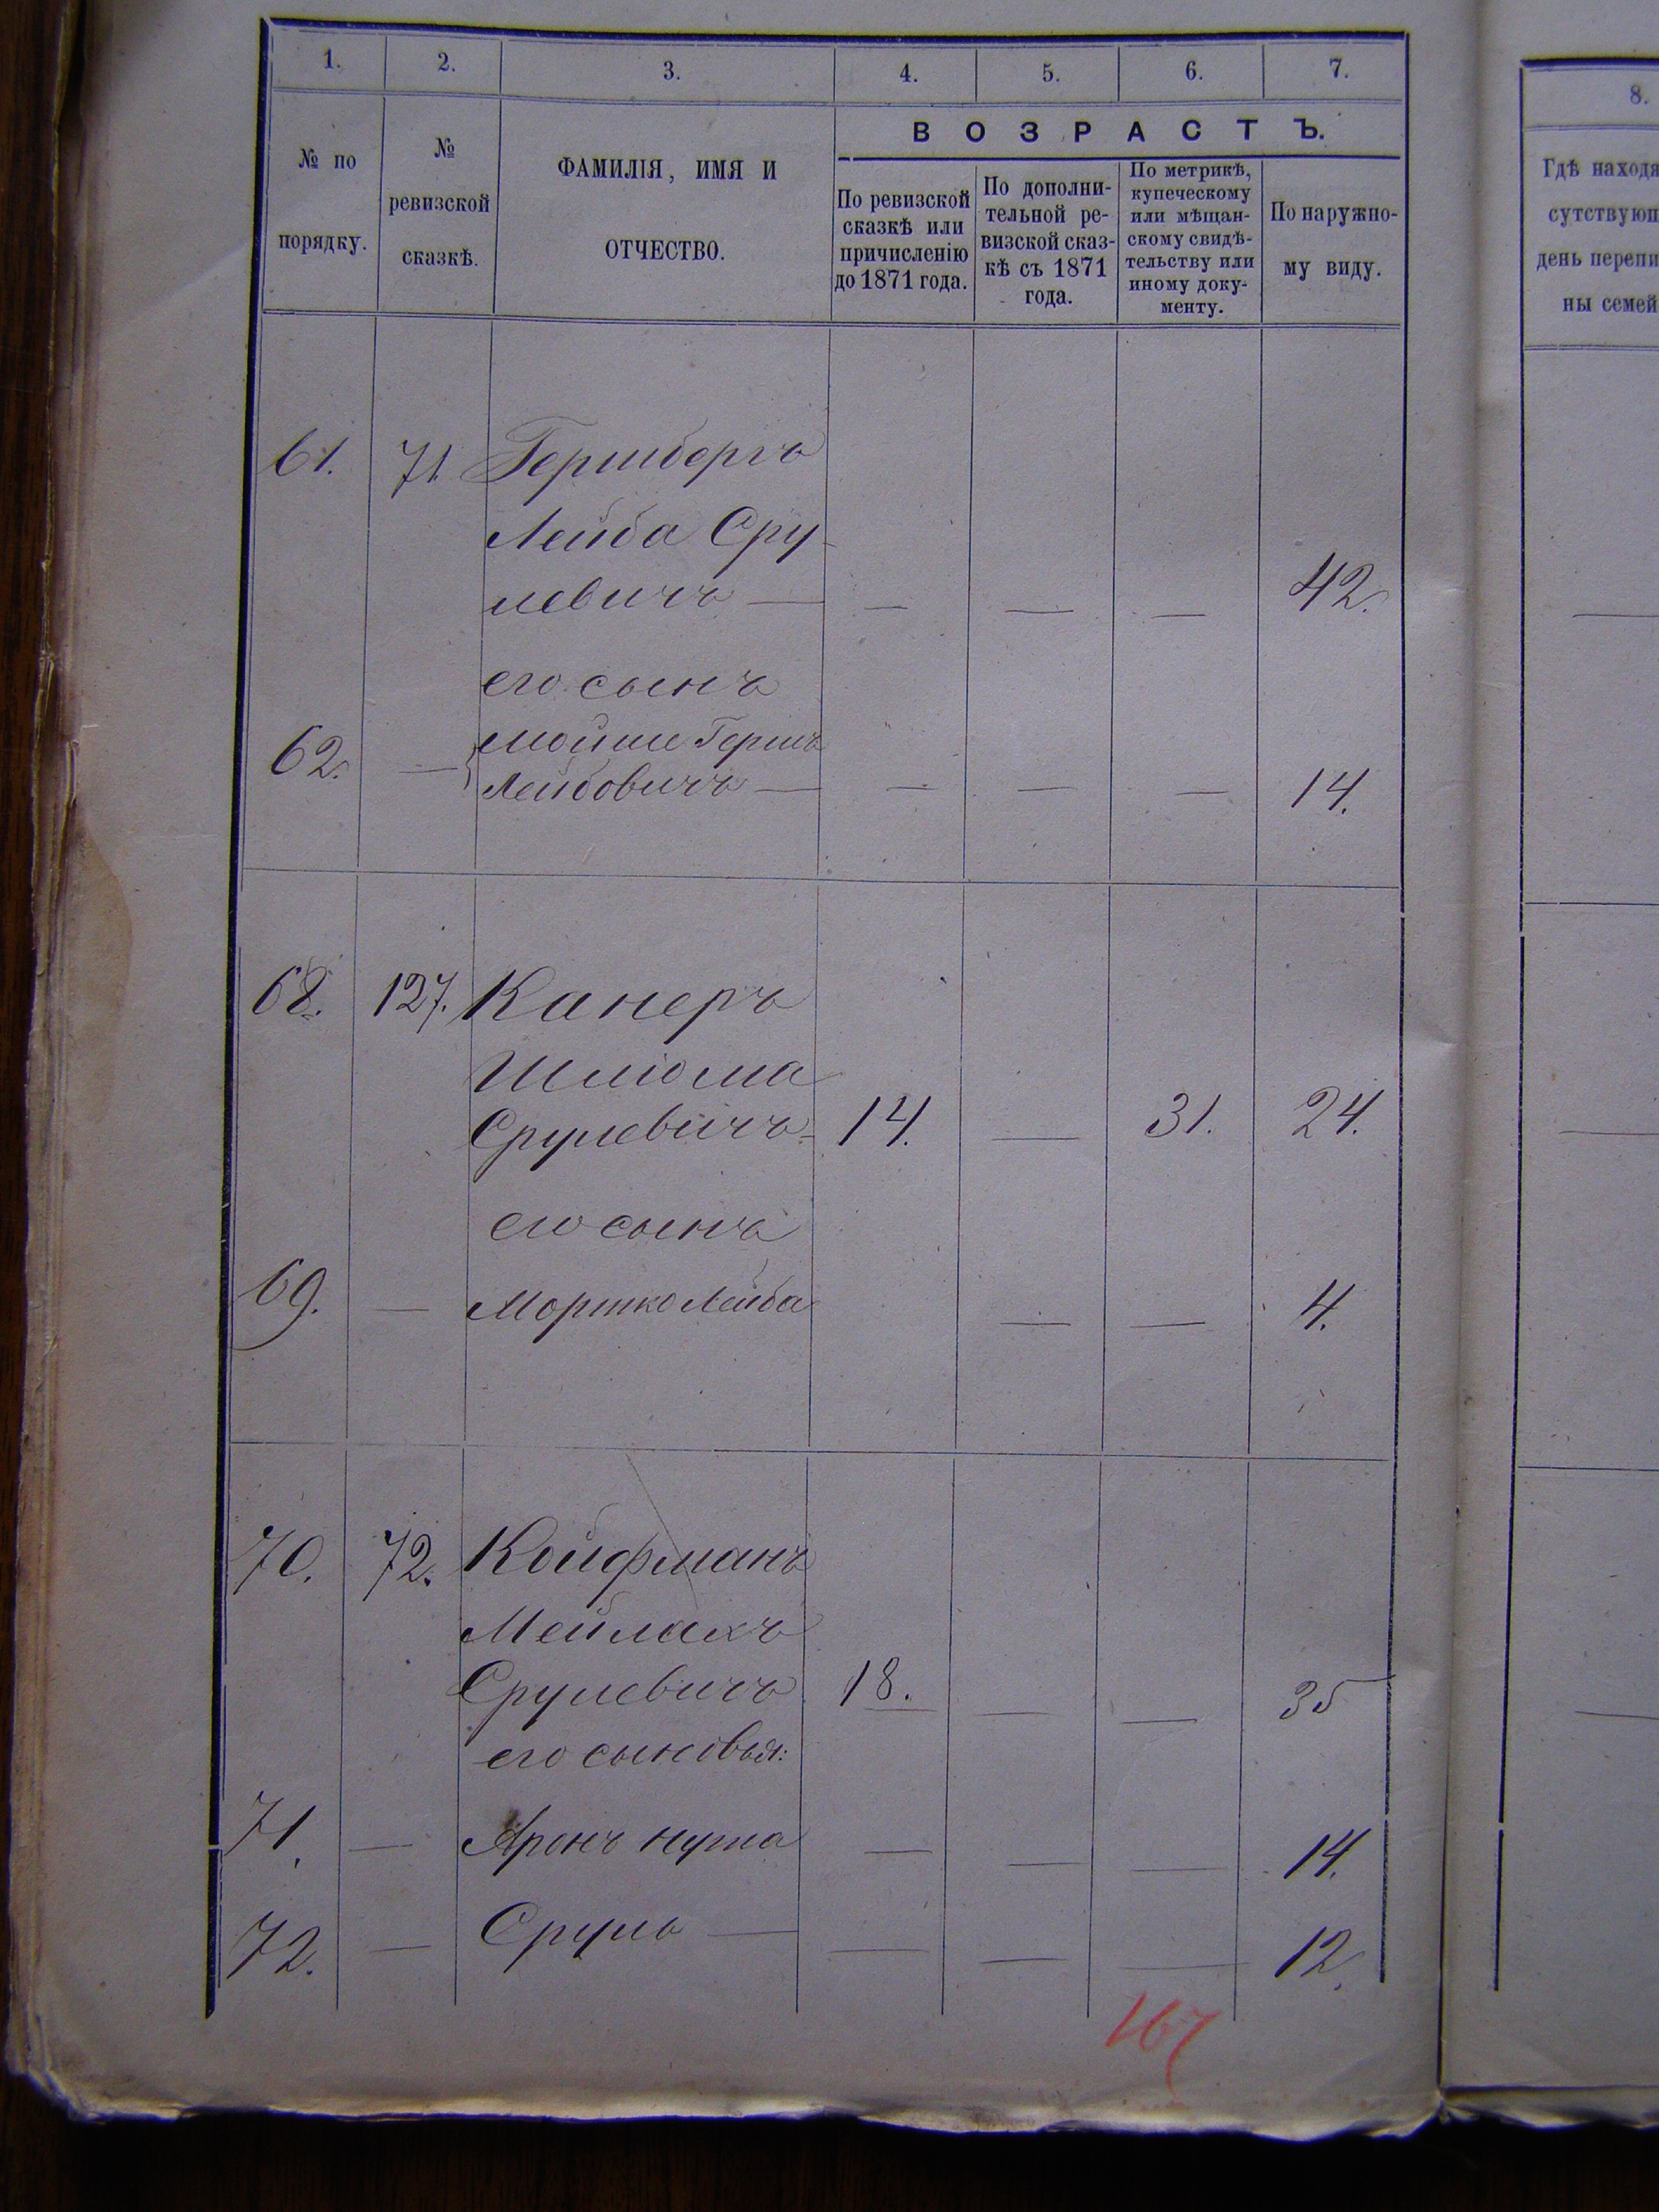 1. 2. 3. 4. 5. 6. 7.
8.
№ по порядку.
№ ревизской сказкѣ.
ФАМИЛІЯ, ИМЯ И ОТЧЕСТВО.
ВОЗРАСТЪ.
По ревизской сказкѣ или причисленію до 1871 года.
По дополни-
тельной ре-
визской сказ-
кѣ съ 1871
года.
По метрикѣ,
купеческому
или мѣщан-
скому свидѣ-
тельству или
иному доку-
менту.
По наружно-
му виду.
Гдѣ находя
сутствующ
день перепи
ны семей
61. 71. Гершбергъ
Лейба Сру-
левичъ — — — — 42.
его сынъ
62. — Мойше Гершъ
Лейбовичъ — — — — 14.
68. 127. Канеръ
Шлиома
Срулевичъ 14. — 31. 24.
его сынъ
69. — Моршко Лейба — — 4.
70. 72. Койфманъ
Мейлахъ
Срулевичъ 18. — — 35
его сыновья:
71. — Аронъ Нута — — — 14.
72. — Сруль — — — — 12.
167